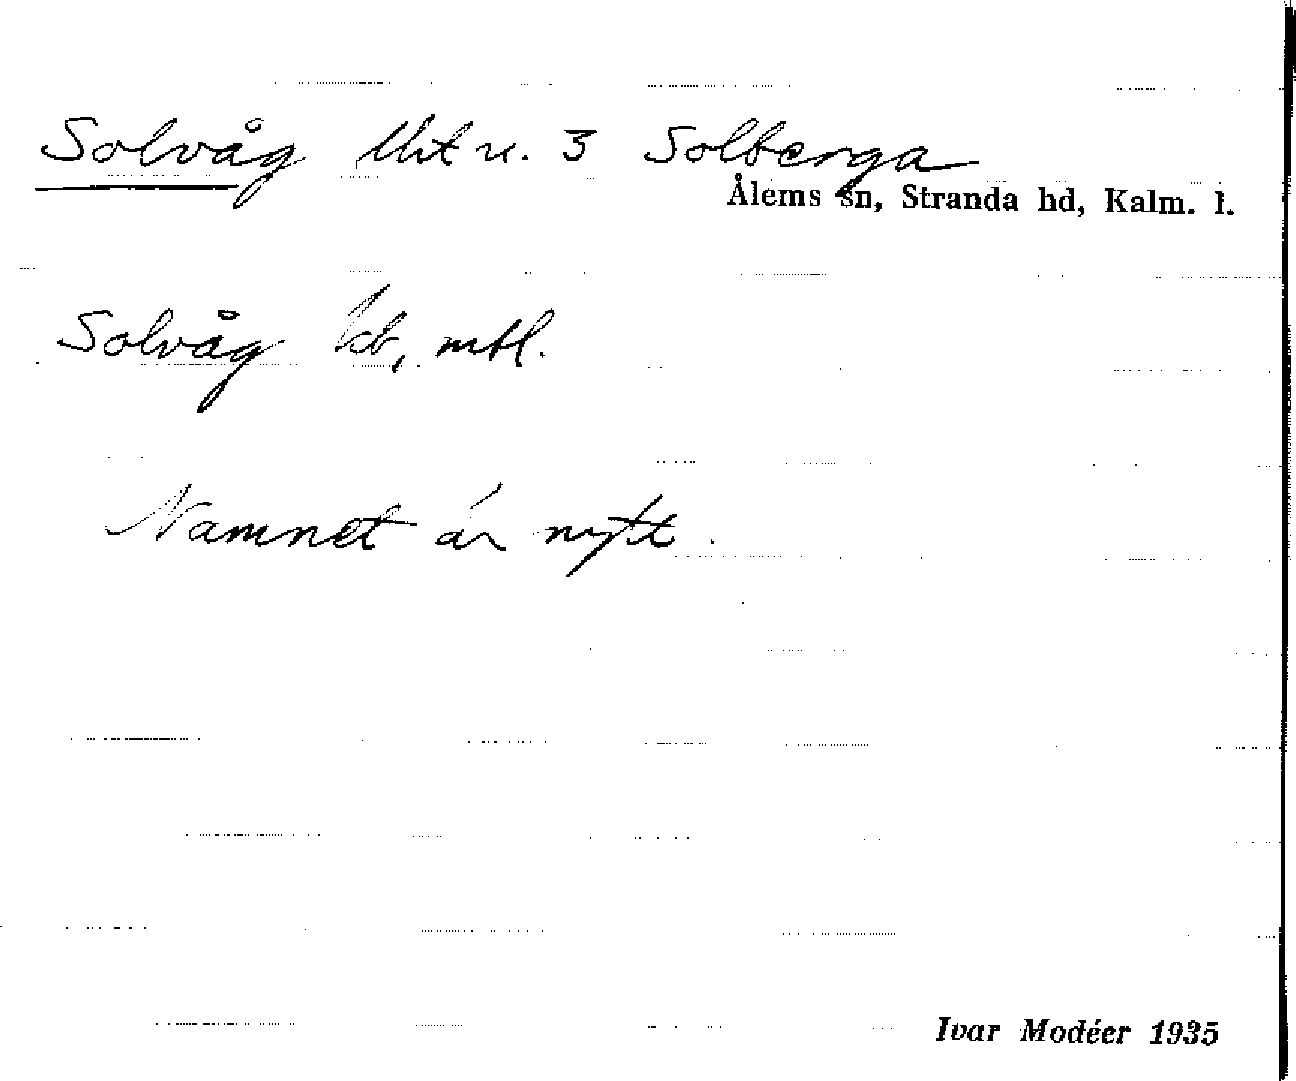 Solvåg lht u. 3 Solberga
Ålems sn, Stranda hd, Kalm. l.
Solvåg kb, mtl.
Namnet är nytt.
Ivar Modéer 1935